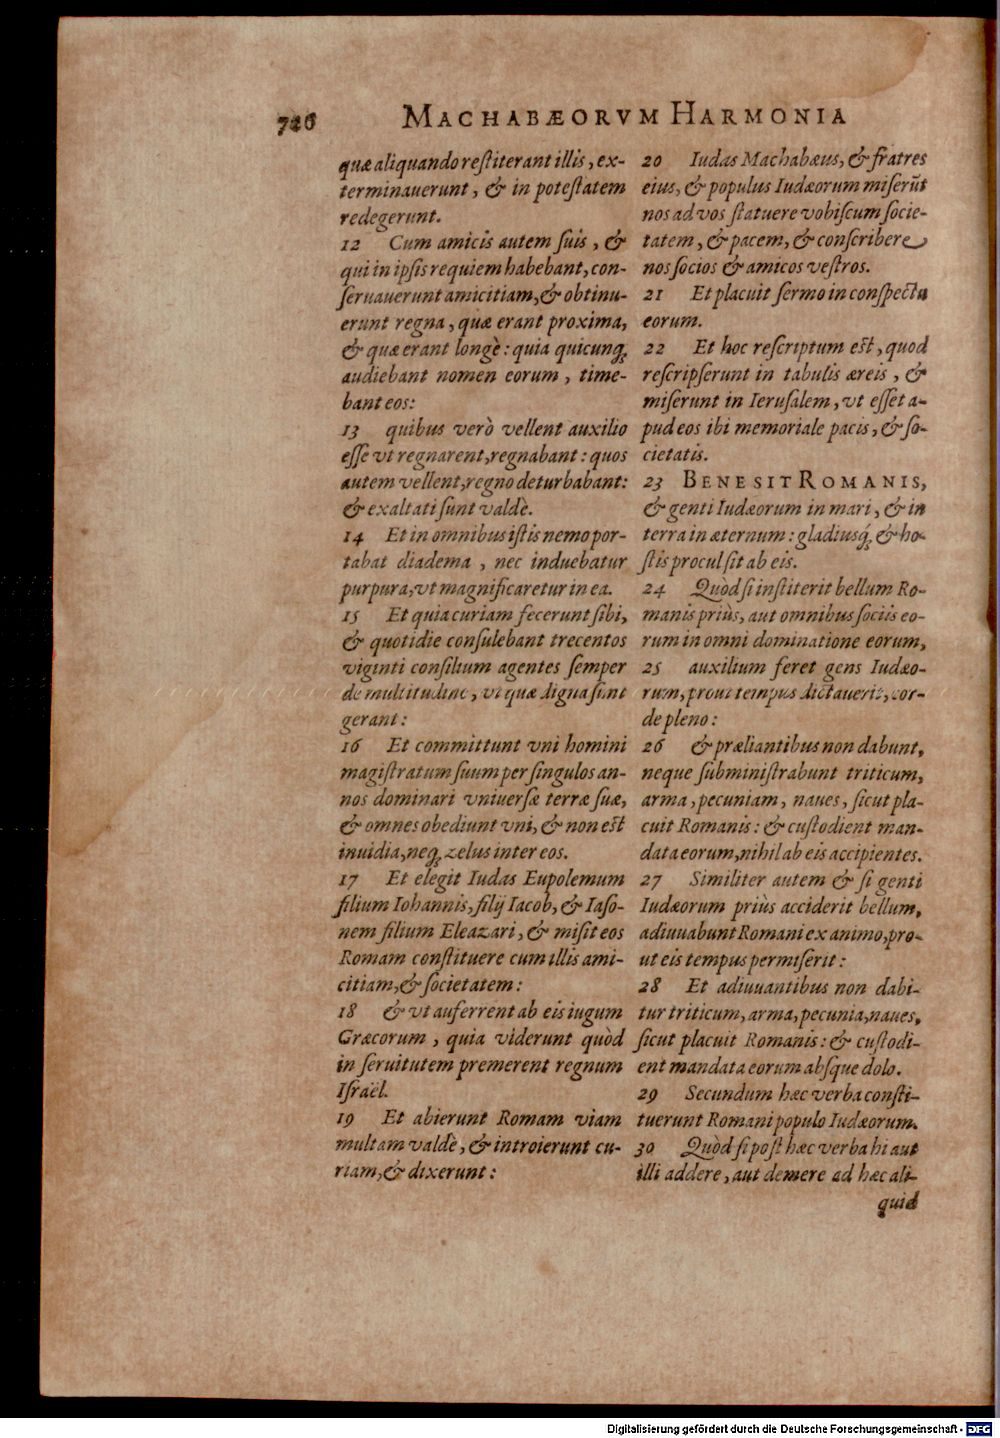 726 MACHABÆORVM HARMONIA
quæ aliquando reſtiterant illis, ex-
terminauerunt, & in poteſtatem
redegerunt.
12 Cum amicis autem ſuis, &
qui in ipſis requiem habebant, con-
ſeruauerunt amicitiam, & obtinu-
erunt regna, quæ erant proxima,
& quæ erant longè: quia quicunq́;
audiebant nomen eorum, time-
bant eos:
13 quibus verò vellent auxilio
eſſe vt regnarent, regnabant: quos
autem vellent, regno deturbabant:
& exaltati ſunt valdè.
14 Et in omnibus iſtis nemo por-
tabat diadema, nec induebatur
purpura, vt magnificaretur in ea.
15 Et quia curiam fecerunt ſibi,
& quotidie conſulebant trecentos
viginti conſilium agentes ſemper
de multitudine, vt quæ digna ſunt
gerant:
16 Et committunt vni homini
magiſtratum ſuum per ſingulos an-
nos dominari vniuerſæ terræ ſuæ,
& omnes obediunt vni, & non eſt
inuidia, neq; zelus inter eos.
17 Et elegit Iudas Eupolemum
filium Iohannis, filij Iacob, & Iaſo-
nem filium Eleazari, & miſit eos
Romam conſtituere cum illis ami-
citiam, & ſocietatem:
18 & vt auferrent ab eis iugum
Græcorum, quia viderunt quòd
in ſeruitutem premerent regnum
Iſraël.
19 Et abierunt Romam viam
multam valdè, & introierunt cu-
riam, & dixerunt:
20 Iudas Machabæus, & fratres
eius, & populus Iudæorum miſerũt
nos ad vos ſtatuere vobiſcum ſocie-
tatem, & pacem, & conſcribere
nos ſocios & amicos veſtros.
21 Et placuit ſermo in conſpectu
eorum.
22 Et hoc reſcriptum eſt, quod
reſcripſerunt in tabulis æreis, &
miſerunt in Ieruſalem, vt eſſet a-
pud eos ibi memoriale pacis, & ſo-
cietatis.
23 BENE SIT ROMANIS,
& genti Iudæorum in mari, & in
terra in æternum: gladiusq́; & ho-
ſtis procul ſit ab eis.
24 Quòd ſi inſtiterit bellum Ro-
manis priùs, aut omnibus ſociis eo-
rum in omni dominatione eorum,
25 auxilium feret gens Iudæo-
rum, prout tempus dictauerit, cor-
de pleno:
26 & præliantibus non dabunt,
neque ſubminiſtrabunt triticum,
arma, pecuniam, naues, ſicut pla-
cuit Romanis: & cuſtodient man-
data eorum, nihil ab eis accipientes.
27 Similiter autem & ſi genti
Iudæorum priùs acciderit bellum,
adiuuabunt Romani ex animo, pro-
ut eis tempus permiſerit:
28 Et adiuuantibus non dabi-
tur triticum, arma, pecunia, naues,
ſicut placuit Romanis: & cuſtodi-
ent mandata eorum abſque dolo.
29 Secundum hæc verba conſti-
tuerunt Romani populo Iudæorum.
30 Quòd ſi poſt hæc verba hi aut
illi addere, aut demere ad hæc ali-
quid
Digitalisierung gefördert durch die Deutsche Forschungsgemeinschaft - DFG